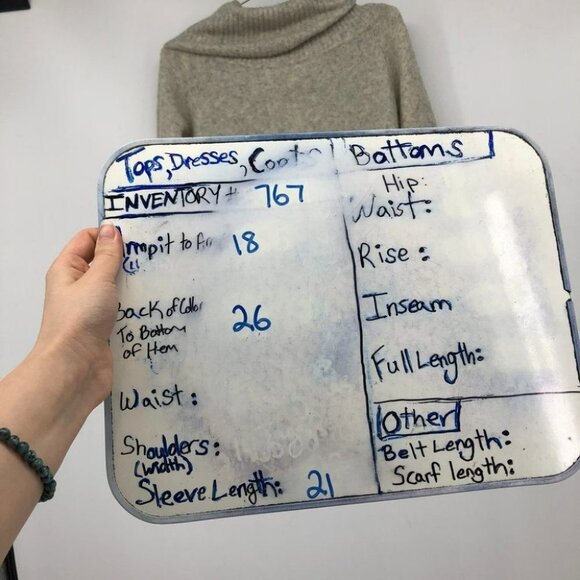 Tops, Dresses, Coats
INVENTORY # 767
Armpit to 18
Back of Collar
To Bottom
of Hem
26
Waist:
Shoulders:
(width)
Sleeve Length: 21
Bottoms
Hip:
Waist:
Rise:
Inseam
Full Length:
Other
Belt Length:
Scarf length: